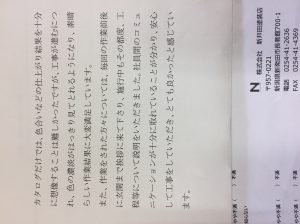 カタログだけでは、色合いなどの仕上がり結果を十分
に想像することは難しかったですが、工事が進むにつ
れ、色の濃淡がはっきり見てとれるようになり、素晴
らしい作業結果に大変満足しています。
また、作業をされた方々については、毎回の作業前後
に玄関まで挨拶に来て下さり、施行中もその都度、工
程等について説明をいただきました。社員間のコミュ
ニケーションが十分に取れていることが分かり、安心
して工事をしていただき、とても良かったと感じてい
ます。
N 株式会社 新井田塗装店
〒957-0221
新潟県新発田市
700-1
電話 0254-41-2626
FAX 0254-41-4369
やや不満 ( ) 不満
やや不満 ( ) 不満